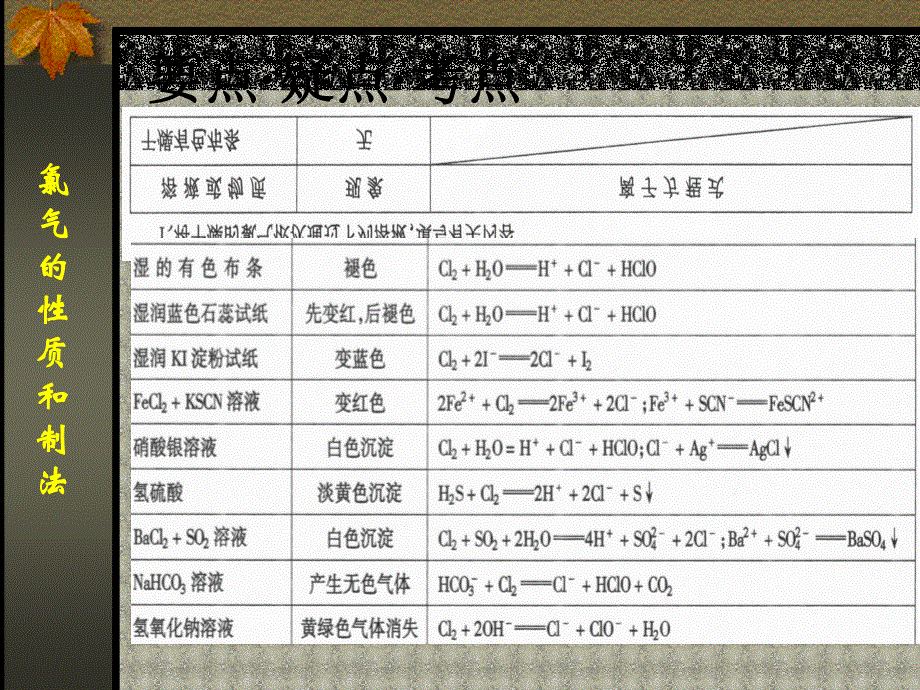 要点·疑点·考点
氯气的性质和制法
干燥有色布条 无
溶液或物质 现象 离子方程式
1.将干燥的氯气依次通过下列溶液,有关内容
湿的有色布条 褪色 Cl₂ + H₂O══H⁺ + Cl⁻ + HClO
湿润蓝色石蕊试纸 先变红,后褪色 Cl₂ + H₂O══H⁺ + Cl⁻ + HClO
湿润KI淀粉试纸 变蓝色 Cl₂ + 2I⁻══2Cl⁻ + I₂
FeCl₂ + KSCN溶液 变红色 2Fe²⁺ + Cl₂══2Fe³⁺ + 2Cl⁻;Fe³⁺ + SCN⁻══FeSCN²⁺
硝酸银溶液 白色沉淀 Cl₂ + H₂O = H⁺ + Cl⁻ + HClO;Cl⁻ + Ag⁺══AgCl↓
氢硫酸 淡黄色沉淀 H₂S + Cl₂══2H⁺ + 2Cl⁻ + S↓
BaCl₂ + SO₂溶液 白色沉淀 Cl₂ + SO₂ + 2H₂O══4H⁺ + SO₄²⁻ + 2Cl⁻;Ba²⁺ + SO₄²⁻══BaSO₄↓
NaHCO₃溶液 产生无色气体 HCO₃⁻ + Cl₂══Cl⁻ + HClO + CO₂
氢氧化钠溶液 黄绿色气体消失 Cl₂ + 2OH⁻══Cl⁻ + ClO⁻ + H₂O